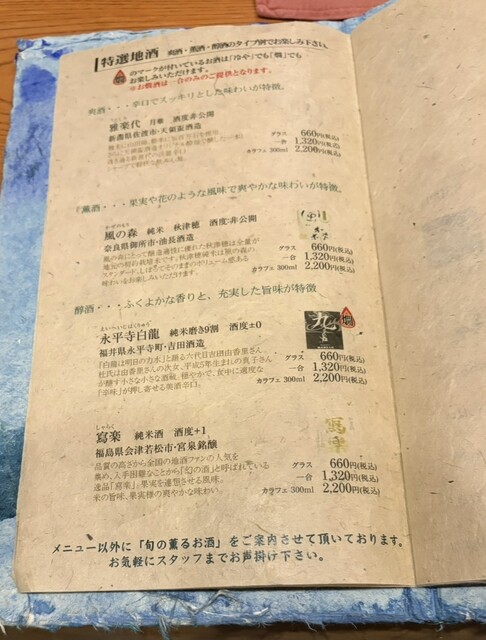 特選地酒 爽酒・薫酒・醇酒のタイプ別でお楽しみ下さい。
燗 のマークが付いているお酒は「冷や」でも「燗」でも
お楽しみいただけます。
※お燗酒は一合のみのご提供となります。
爽酒・・・辛口でスッキリとした味わいが特徴。
雅楽代 月華 酒度非公開
新潟県佐渡市・天領盃酒造
グラス 660円(税込)
一合 1,320円(税込)
カラフェ 300ml 2,200円(税込)
薫酒・・・果実や花のような風味で爽やかな味わいが特徴。
かぜのもり
風の森 純米 秋津穂 酒度:非公開
奈良県御所市・油長酒造
風の森にとって醸造適性に優れた秋津穂は全量が
スタンダード。しぼりてそのままのボリューム感ある
味わいをお楽しみいただけます。
グラス 660円(税込)
一合 1,320円(税込)
カラフェ 300ml 2,200円(税込)
醇酒・・・ふくよかな香りと、充実した旨味が特徴
えいへいじはくりゅう
永平寺白龍 純米磨き9割 酒度±0
福井県永平寺町・吉田酒造
「白龍は明日の力水」と語る六代目吉田由香里さん
杜氏は由香里さんの次女、平成5年生まれの真子さん
が醸す小さな小さな酒蔵。穏やかで、食中に適度な
「辛味」が押し寄せる美酒辛口。
燗
グラス 660円(税込)
一合 1,320円(税込)
カラフェ 300ml 2,200円(税込)
しゃらく
寫楽 純米酒 酒度+1
福島県会津若松市・宮泉銘醸
品質の高さから全国の地酒ファンの人気を
集め、入手困難なことから「幻の酒」と呼ばれている
逸品「寫楽」。果実を連想させる風味。
米の旨味、果実様の爽やかな味わい。
寫楽
グラス 660円(税込)
一合 1,320円(税込)
カラフェ 300ml 2,200円(税込)
メニュー以外に「旬の薫るお酒」をご案内させて頂いております。
お気軽にスタッフまでお声掛け下さい。